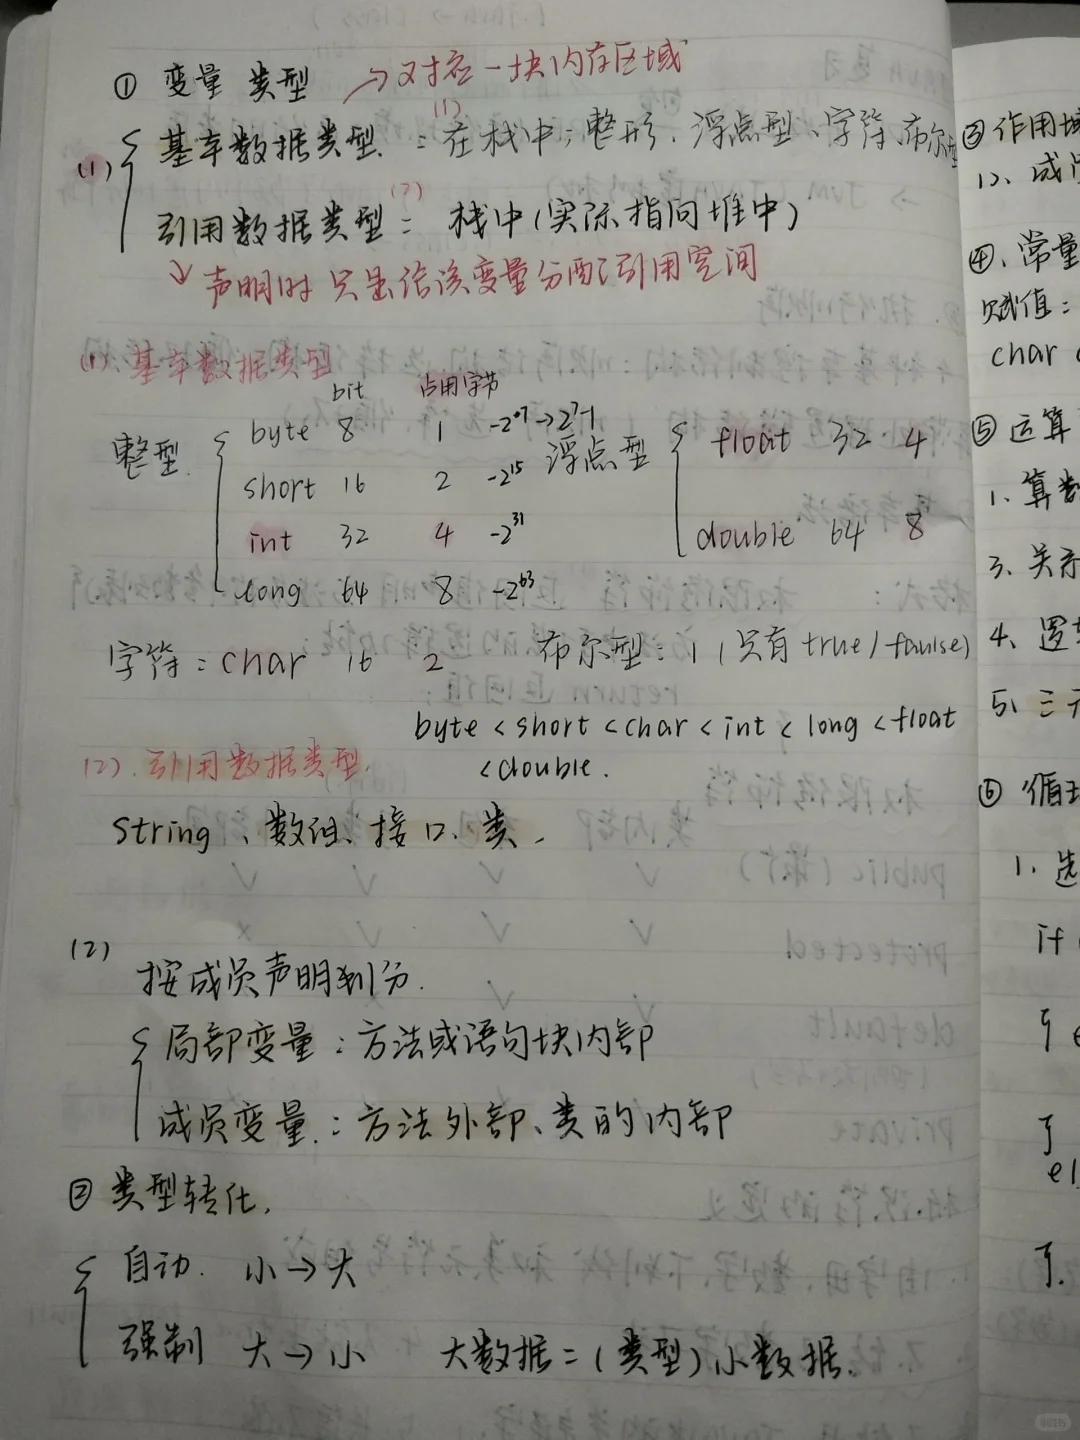 ① 变量类型 → 对应一块内存区域
(1) 基本数据类型 (1) : 在栈中; 整形、浮点型、字符、布尔型
引用数据类型 (2) : 栈中(实际指向堆中)
↳ 声明时只是给该变量分配了引用空间
(1) 基本数据类型
bit 占用字节
整型 byte 8 1 -2^07→2^7-1
short 16 2 -2^15
int 32 4 -2^31
long 64 8 -2^63
浮点型 float 32 4
double 64 8
字符: char 16 2 布尔型: 1 (只有true/faulse)
byte < short < char < int < long < float
< double.
(2). 引用数据类型.
String、数组、接口、类.
(2)
按成员声明划分.
局部变量: 方法或语句块内部
成员变量.: 方法外部、类的内部
② 类型转化.
自动. 小→大
强制 大→小 大数据=(类型)小数据.
③ 作用域
1)、成员
④、常量
赋值:
char
⑤ 运算
1、算数
3、关系
4、逻
5、三元
⑥ 循环
1、选
if
el